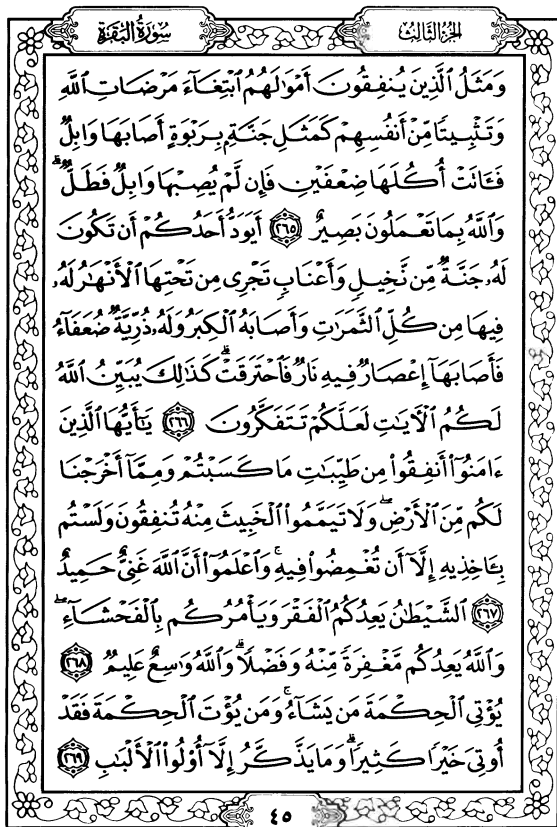 الجزء الثالث
سورة البقرة
وَمَثَلُ ٱلَّذِينَ يُنفِقُونَ أَمْوَٰلَهُمُ ٱبْتِغَآءَ مَرْضَاتِ ٱللَّهِ
وَتَثْبِيتًا مِّنْ أَنفُسِهِمْ كَمَثَلِ جَنَّةٍۭ بِرَبْوَةٍ أَصَابَهَا وَابِلٌ
فَـَٔاتَتْ أُكُلَهَا ضِعْفَيْنِ فَإِن لَّمْ يُصِبْهَا وَابِلٌ فَطَلٌّ ۗ
وَٱللَّهُ بِمَا تَعْمَلُونَ بَصِيرٌ ٢٦٥ أَيَوَدُّ أَحَدُكُمْ أَن تَكُونَ
لَهُۥ جَنَّةٌ مِّن نَّخِيلٍ وَأَعْنَابٍ تَجْرِى مِن تَحْتِهَا ٱلْأَنْهَٰرُ لَهُۥ
فِيهَا مِن كُلِّ ٱلثَّمَرَٰتِ وَأَصَابَهُ ٱلْكِبَرُ وَلَهُۥ ذُرِّيَّةٌ ضُعَفَآءُ
فَأَصَابَهَآ إِعْصَارٌ فِيهِ نَارٌ فَٱحْتَرَقَتْ ۗ كَذَٰلِكَ يُبَيِّنُ ٱللَّهُ
لَكُمُ ٱلْـَٔايَٰتِ لَعَلَّكُمْ تَتَفَكَّرُونَ ٢٦٦ يَٰٓأَيُّهَا ٱلَّذِينَ
ءَامَنُوٓا۟ أَنفِقُوا۟ مِن طَيِّبَٰتِ مَا كَسَبْتُمْ وَمِمَّآ أَخْرَجْنَا
لَكُم مِّنَ ٱلْأَرْضِ ۖ وَلَا تَيَمَّمُوا۟ ٱلْخَبِيثَ مِنْهُ تُنفِقُونَ وَلَسْتُم
بِـَٔاخِذِيهِ إِلَّآ أَن تُغْمِضُوا۟ فِيهِ ۚ وَٱعْلَمُوٓا۟ أَنَّ ٱللَّهَ غَنِىٌّ حَمِيدٌ
٢٦٧ ٱلشَّيْطَٰنُ يَعِدُكُمُ ٱلْفَقْرَ وَيَأْمُرُكُم بِٱلْفَحْشَآءِ ۖ
وَٱللَّهُ يَعِدُكُم مَّغْفِرَةً مِّنْهُ وَفَضْلًا ۗ وَٱللَّهُ وَٰسِعٌ عَلِيمٌ ٢٦٨
يُؤْتِى ٱلْحِكْمَةَ مَن يَشَآءُ ۚ وَمَن يُؤْتَ ٱلْحِكْمَةَ فَقَدْ
أُوتِىَ خَيْرًا كَثِيرًا ۗ وَمَا يَذَّكَّرُ إِلَّآ أُو۟لُوا۟ ٱلْأَلْبَٰبِ ٢٦٩
٤٥